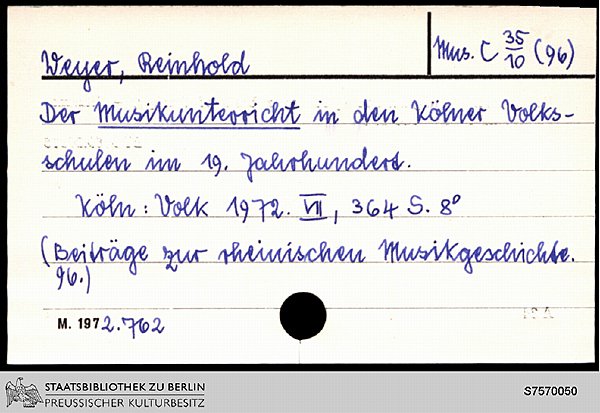 Weyer, Reinhold
Mus. C 35/10 (96)
Der Musikunterricht in den Kölner Volks-
schulen im 19. Jahrhundert.
Köln: Volk 1972. VII, 364 S. 8°
(Beiträge zur rheinischen Musikgeschichte.
96.)
M. 1972.762
STAATSBIBLIOTHEK ZU BERLIN
PREUSSISCHER KULTURBESITZ
S7570050